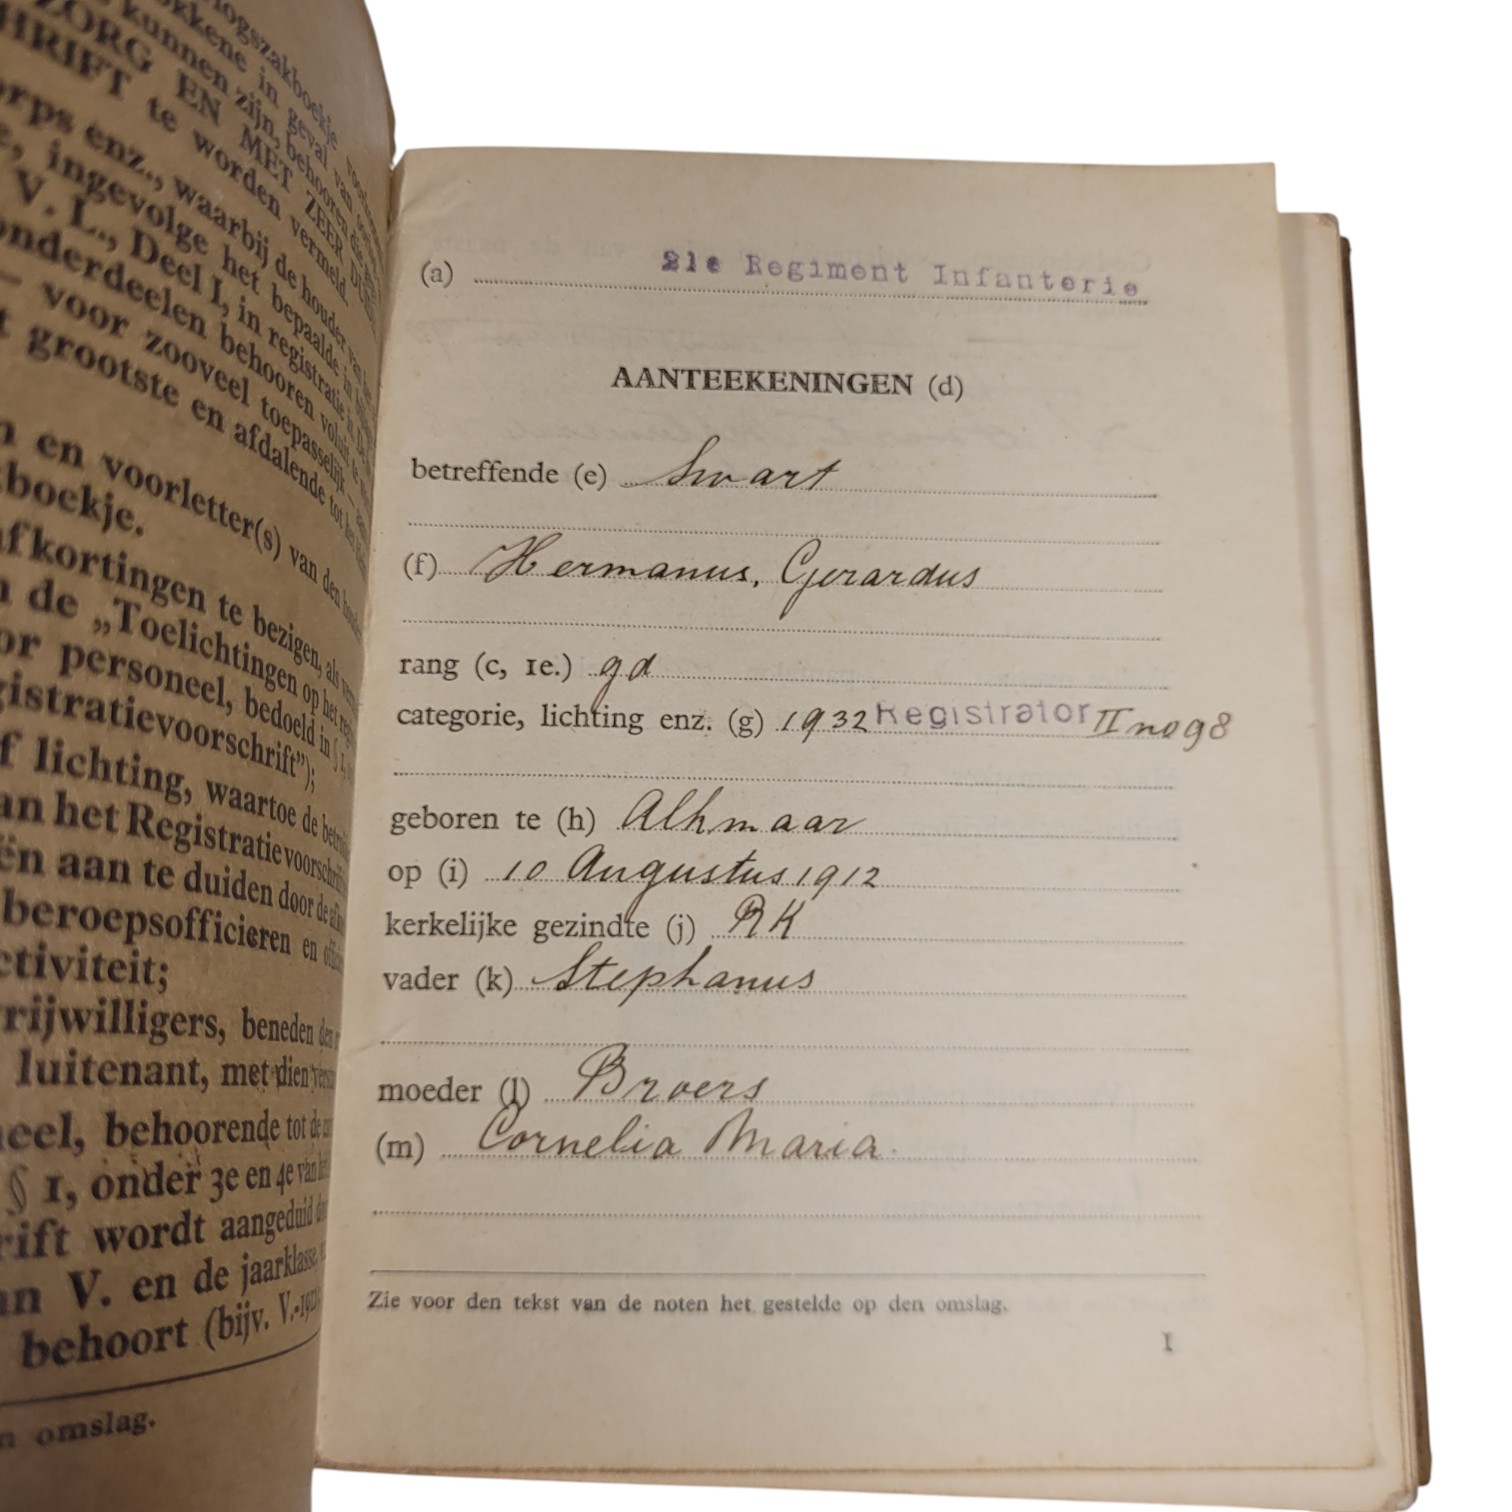 ZORG EN MET ZEER
te worden vermeld.
orps enz., waarbij de houder van
ingevolge het bepaalde in
V. L., Deel I, in registratie
onderdeelen behooren voluit te
— voor zooveel toepasselijk —
grootste en afdalende tot het
en voorletter(s) van den houder
boekje.
afkortingen te bezigen, als
de „Toelichtingen op het
or personeel, bedoeld in § 1,
gistratievoorschrift");
f lichting, waartoe de
an het Registratievoorschrift
ën aan te duiden door de
beroepsofficieren en
ctiviteit;
vrijwilligers, beneden den
luitenant, met dien
neel, behoorende tot de
§ 1, onder 3e en 4e van het
rift wordt aangeduid door
an V. en de jaarklasse,
behoort (bijv. V.-
n omslag.
(a) 21e Regiment Infanterie
AANTEEKENINGEN (d)
betreffende (e) Swart
(f) Hermanus, Gerardus
rang (c, 1e.) gd
categorie, lichting enz. (g) 1932 Registrator II no 98
geboren te (h) Alkmaar
op (i) 10 Augustus 1912
kerkelijke gezindte (j) RK
vader (k) Stephanus
moeder (l) Broers
(m) Cornelia Maria.
Zie voor den tekst van de noten het gestelde op den omslag.
1